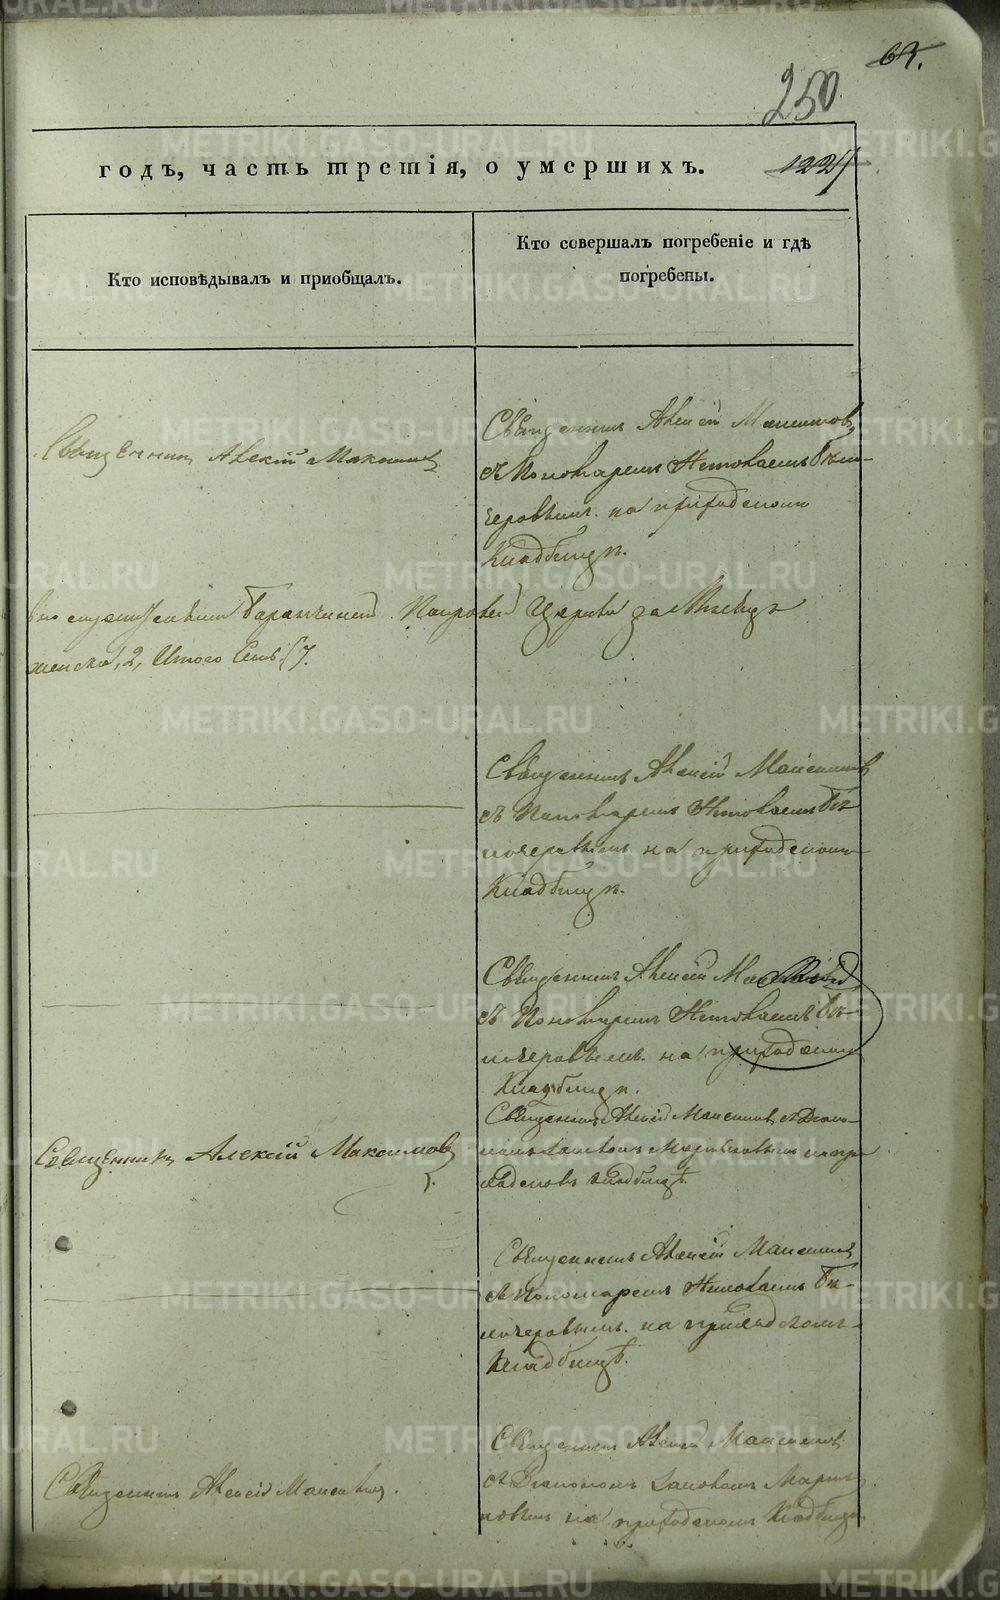 62.
250
годъ, часть третія, о умершихъ.
1227
Кто исповѣдывалъ и приобщалъ.
Кто совершалъ погребеніе и гдѣ
погребены.
Священникъ Алексій Максимовъ
Священникъ Алексій Максимовъ
съ Пономаремъ Николаемъ Бѣло-
черовымъ на приходскомъ
Кладбищѣ.
Баранчинской Покровской Церкви за Мѣсяцъ
женска, 2, Итого
Священникъ Алексій Максимовъ
съ Пономаремъ Николаемъ Бѣ-
лочеровымъ на приходскомъ
Кладбищѣ.
Священникъ Алексій
съ Пономаремъ Николаемъ Бѣ-
лочеровымъ на приходскомъ
Кладбищѣ.
Священникъ Алексій Максимовъ
Священникъ Алексій Максимовъ съ Діако-
номъ на при-
ходскомъ кладбищѣ.
Священникъ Алексій Максимовъ
съ Пономаремъ Николаемъ Бѣ-
лочеровымъ на приходскомъ
Кладбищѣ.
Священникъ Алексій Максимовъ.
Священникъ Алексій Максимовъ
съ Діакономъ
на приходскомъ Кладбищѣ
METRIKI.GASO-URAL.RU